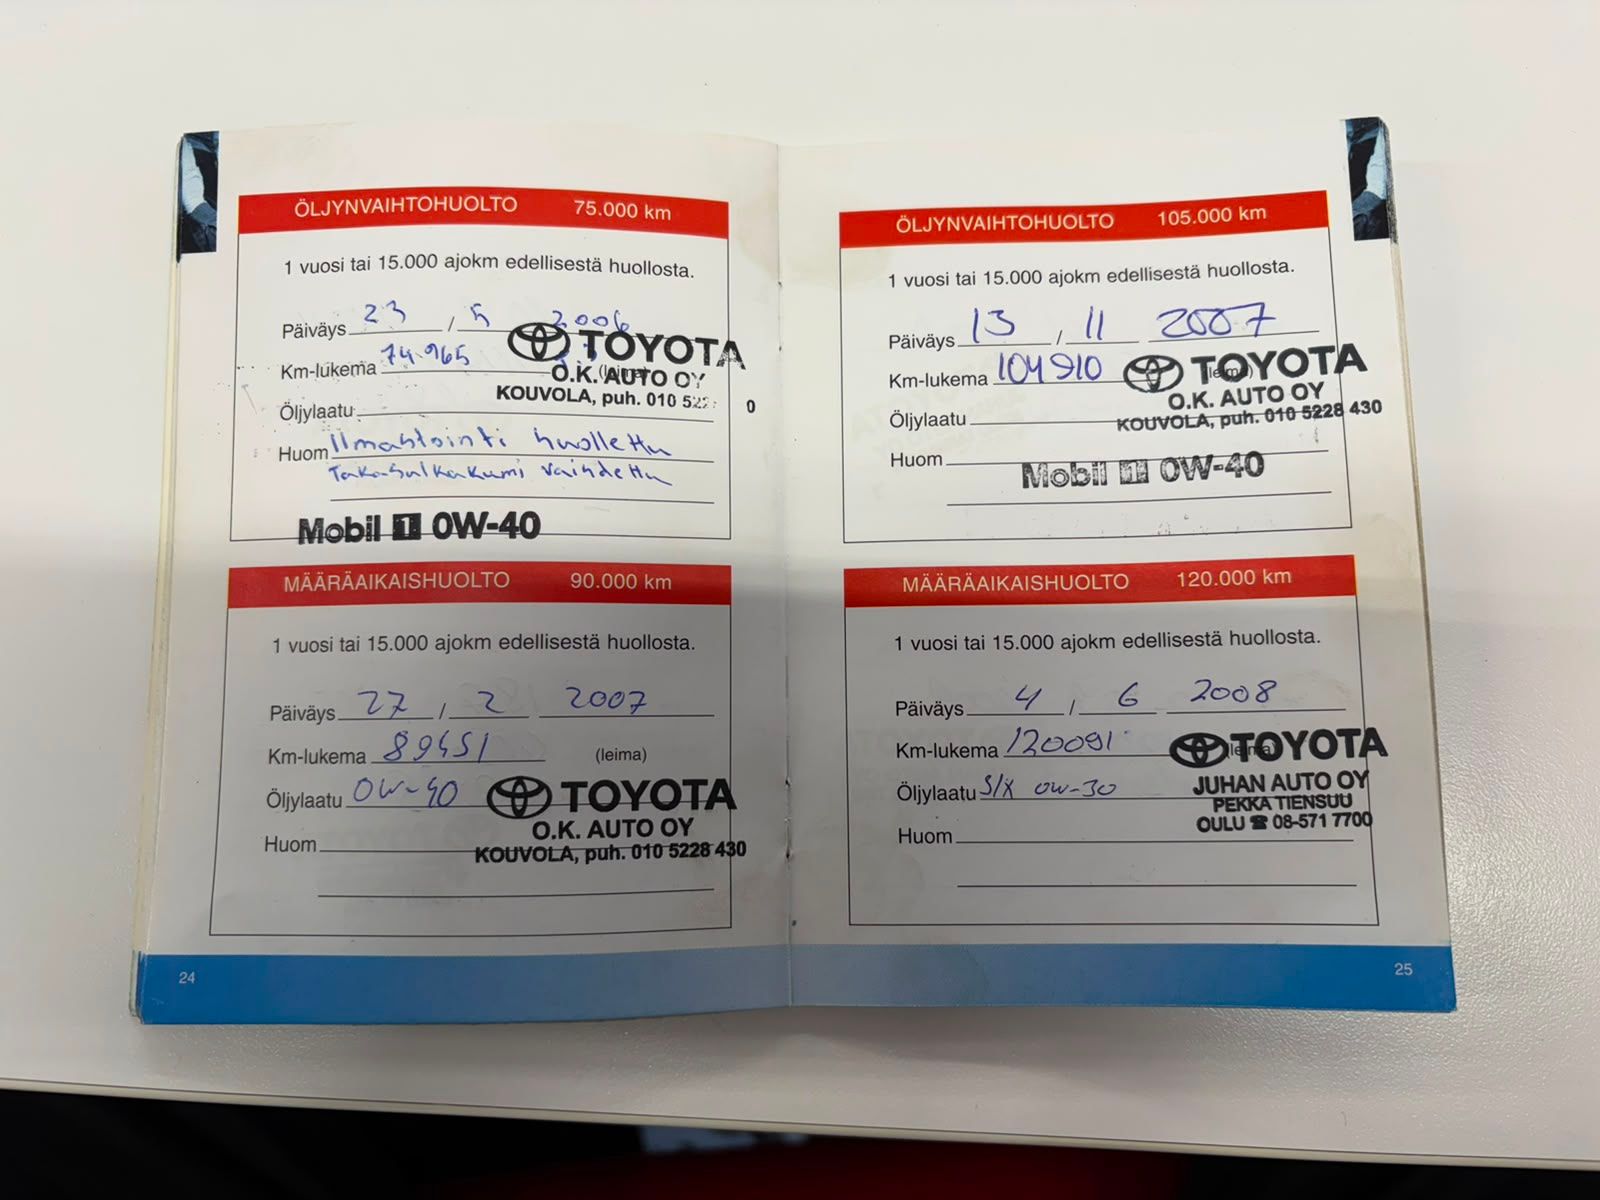 ÖLJYNVAIHTOHUOLTO 75.000 km
1 vuosi tai 15.000 ajokm edellisestä huollosta.
Päiväys 23 / 5 2006
Km-lukema 74.965 (leima)
TOYOTA
O.K. AUTO OY
KOUVOLA, puh. 010 522 0
Öljylaatu
Huom Ilmastointi huollettu
Takasulkakumi vaihdettu
Mobil 1 0W-40
MÄÄRÄAIKAISHUOLTO 90.000 km
1 vuosi tai 15.000 ajokm edellisestä huollosta.
Päiväys 27 / 2 2007
Km-lukema 89451 (leima)
Öljylaatu 0W-40
TOYOTA
O.K. AUTO OY
KOUVOLA, puh. 010 5228 430
Huom
24
ÖLJYNVAIHTOHUOLTO 105.000 km
1 vuosi tai 15.000 ajokm edellisestä huollosta.
Päiväys 13 / 11 2007
Km-lukema 104910 (leima)
TOYOTA
O.K. AUTO OY
KOUVOLA, puh. 010 5228 430
Öljylaatu
Huom
Mobil 1 0W-40
MÄÄRÄAIKAISHUOLTO 120.000 km
1 vuosi tai 15.000 ajokm edellisestä huollosta.
Päiväys 4 / 6 2008
Km-lukema 120091 (leima)
TOYOTA
JUHAN AUTO OY
PEKKA TIENSUU
OULU ☎ 08-571 7700
Öljylaatu S/X 0W-30
Huom
25